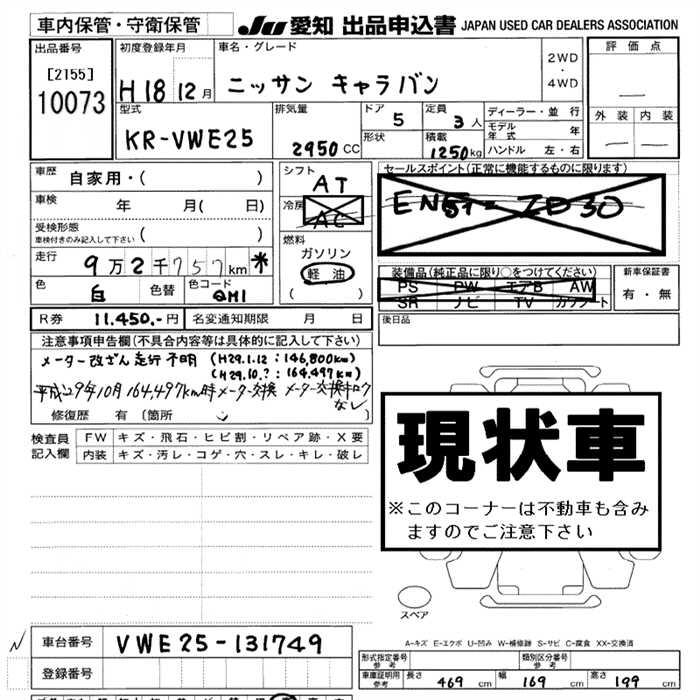 車内保管・守衛保管
JU 愛知 出品申込書 JAPAN USED CAR DEALERS ASSOCIATION
出品番号
[2155]
10073
初度登録年月
H18 12月
車名・グレード
ニッサン キャラバン
2WD
・
4WD
評価点
—
外装 内装
— —
型式
KR-VWE25
排気量
2950CC
ドア
5
形状
定員
3人
積載
1250kg
ディーラー・並行
モデル年式 年
ハンドル 左・右
車歴
自家用・( )
車検
年 月( 日)
受検形態
車検付きのみ記入して下さい
( )
走行
9万2千757km *
色
白
色替
色コード
QM1
シフト
AT
冷房
AC
燃料
ガソリン
軽油
( )
セールスポイント(正常に機能するものに限ります)
装備品(純正品に限り○をつけてください)
PS PW エアB AW
SR ナビ TV カワシート
新車保証書
有・無
R券 11,450.-円
名変通知期限 月 日
後日品
注意事項申告欄(不具合内容等は具体的に記入して下さい)
メーター改ざん走行不明 (H29.1.12:146,800km)
(H29.10.?:164,497km)
平成29年10月164,497km時メーター交換 メーター交換キロク
なし
修復歴 有〔箇所
検査員
記入欄
FW キズ・飛石・ヒビ割・リペア跡・X要
内装 キズ・汚レ・コゲ・穴・スレ・キレ・破レ
現状車
※このコーナーは不動車も含み
ますのでご注意下さい
スペア
A-キズ E-エクボ U-凹み W-補修跡 S-サビ C-腐食 XX-交換済
車台番号
VWE25-131749
登録番号
形式指定番号
参考
類別区分番号
参考
車庫証明用
参考
長さ 469cm 幅 169cm 高さ 199cm